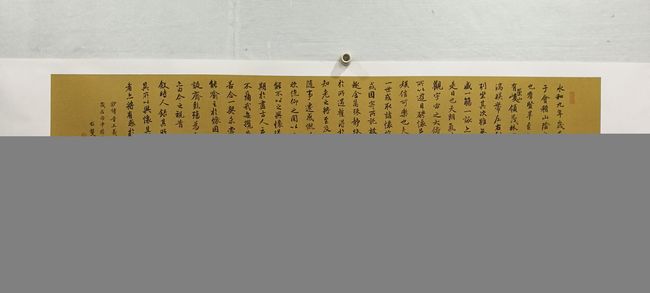 永和九年歲
于會稽山陰
也群賢畢至
有崇峻領茂林
湍暎帶左右
列坐其次雖無
盛一觴一詠
是日也天朗氣
觀宇宙之大俯
所以遊目騁懷
娛信可樂也夫
一世或取諸懷抱
或因寄所託放
趣舍萬殊靜躁
於所遇暫得於
知老之將至及
隨事遷感慨
於俛仰之間以
能不以之興懷
期於盡古人云
不痛哉每攬
若合一契未嘗
能喻之於懷固
誕齊彭殤為
今之視昔
叙時人錄其所
異所以興懷其
者亦將有感於